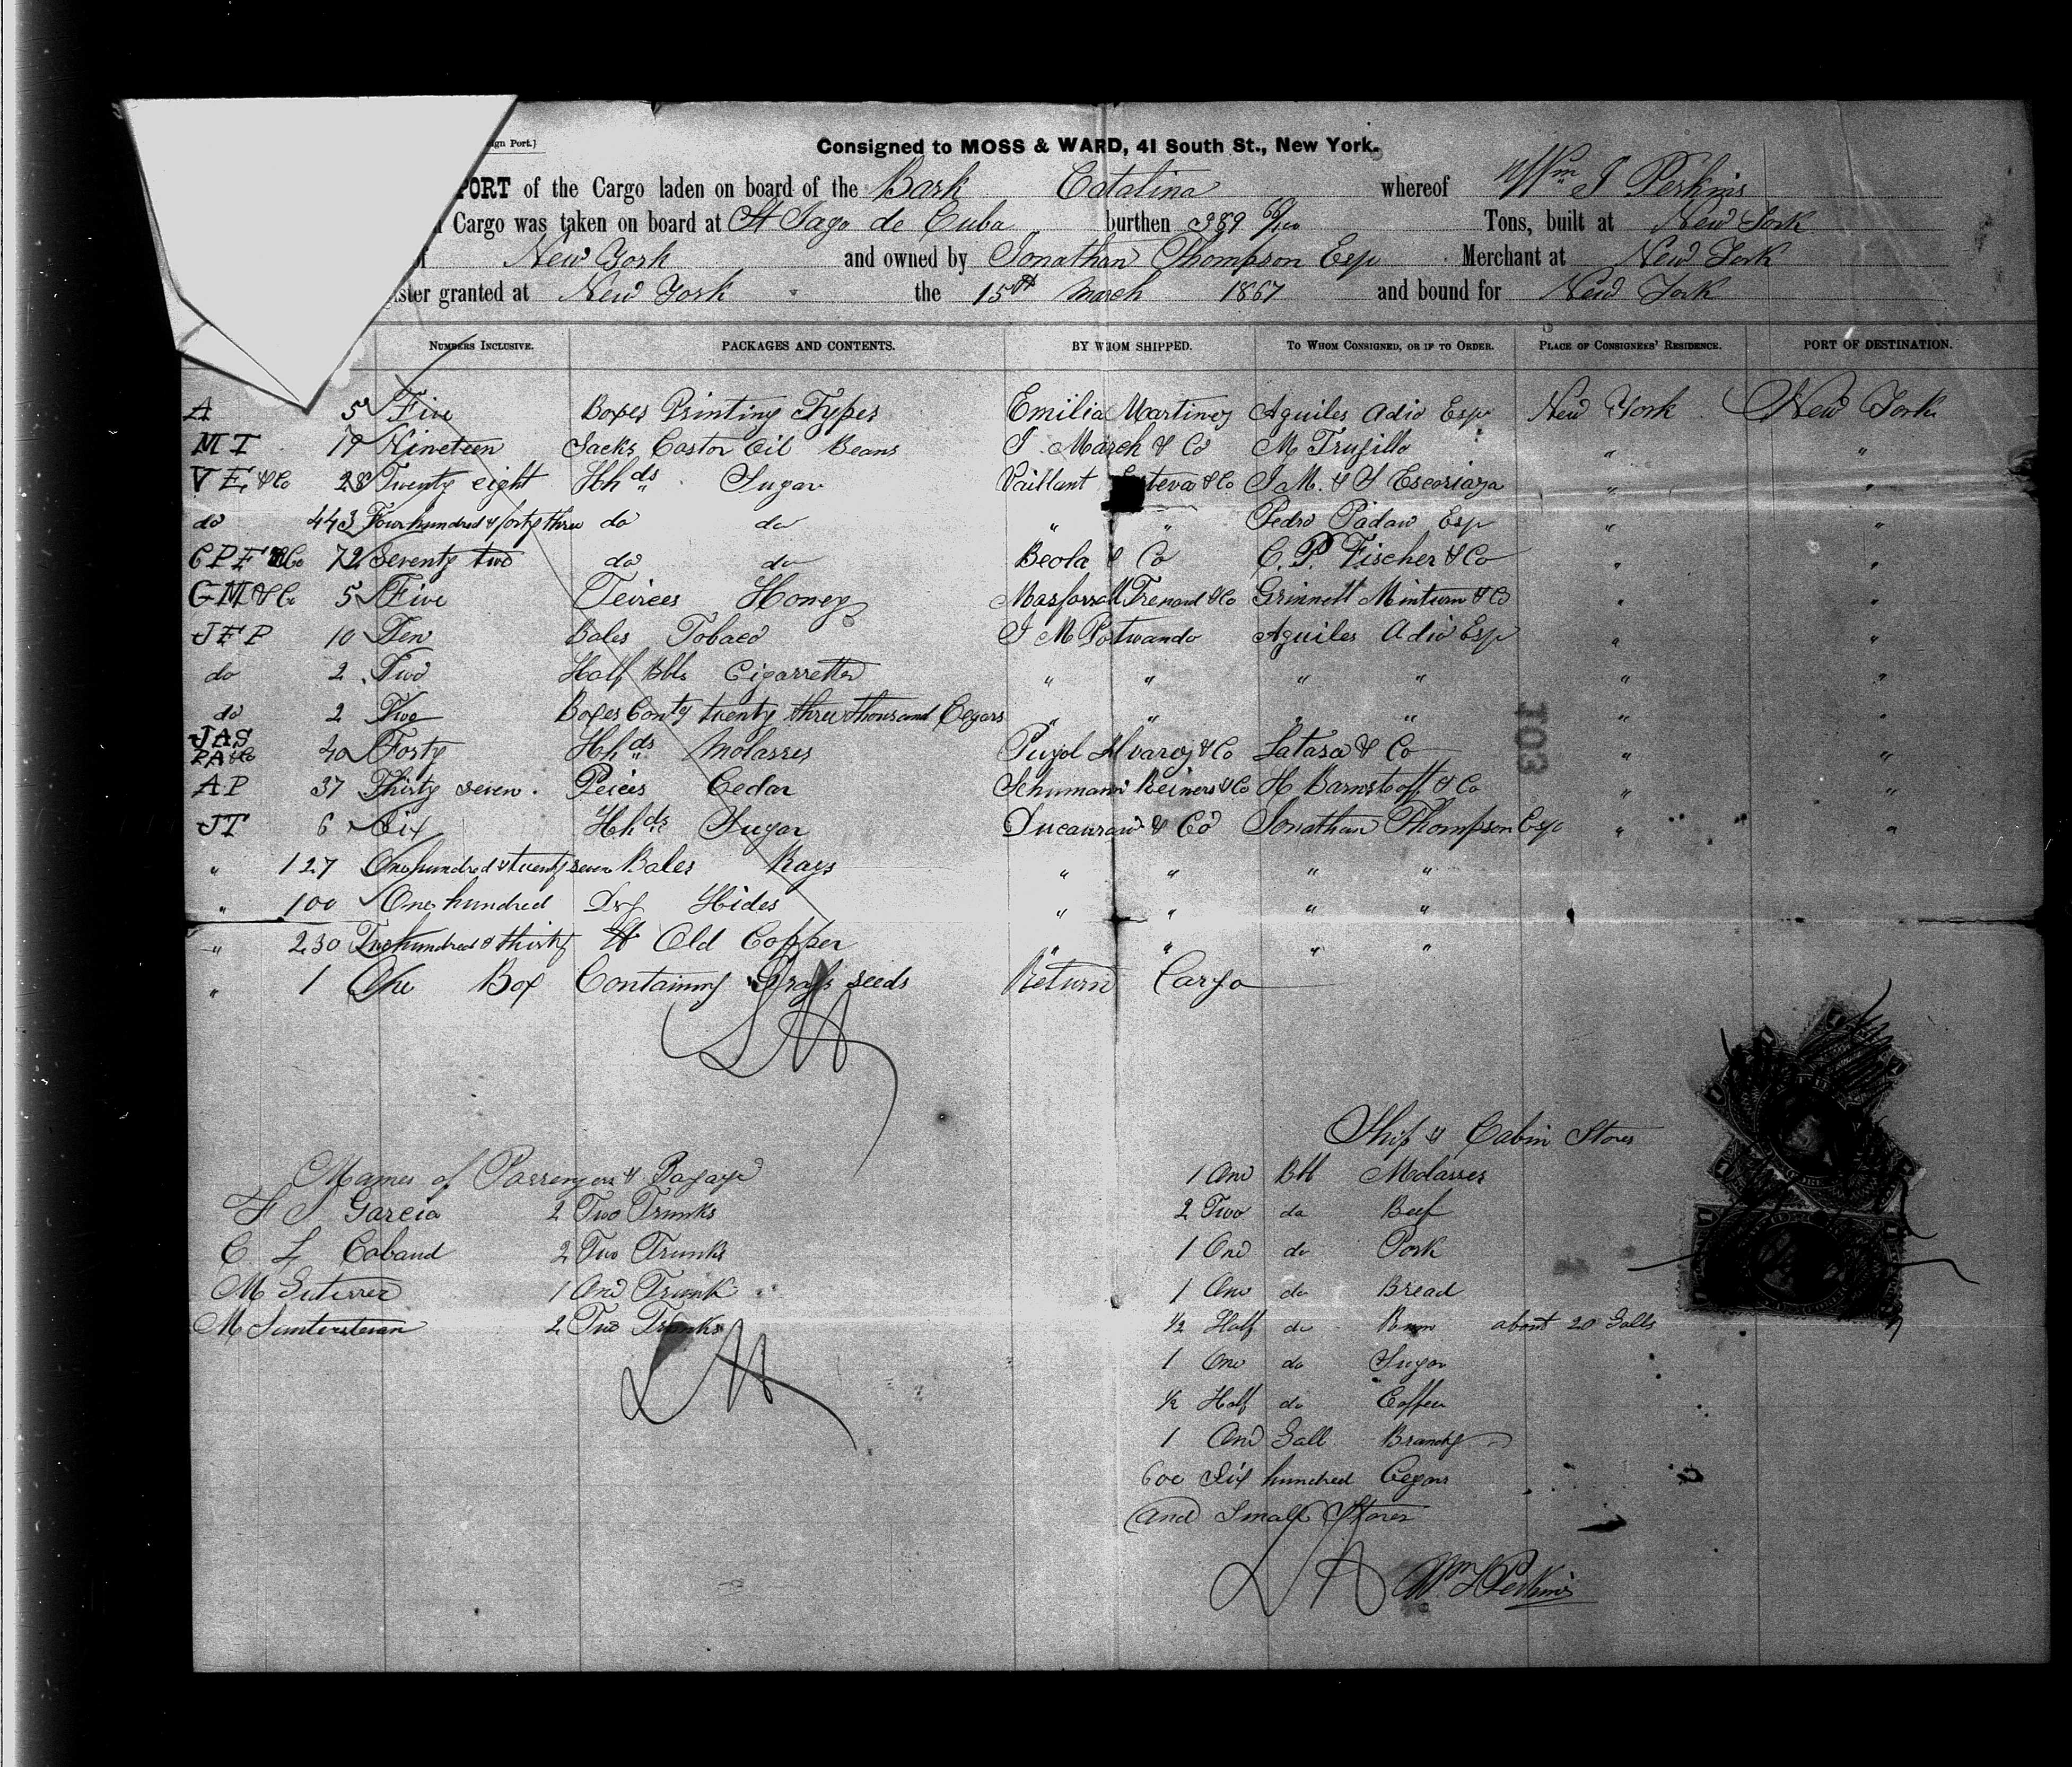 ign Port.]
Consigned to MOSS & WARD, 41 South St., New York.
PORT of the Cargo laden on board of the Bark Catalina whereof Wm J Perkins
Cargo was taken on board at St Jago de Cuba burthen 389 66/100 Tons, built at New York
of New York and owned by Jonathan Thompson Esq Merchant at New York
ister granted at New York the 15th March 1867 and bound for New York
Numbers Inclusive. PACKAGES AND CONTENTS. BY WHOM SHIPPED. To Whom Consigned, or if to Order. Place of Consignees' Residence. PORT OF DESTINATION.
A 5 Five Boxes Printing Types Emilia Martinez Aguiles Adio Esq New York New York
M T 19 Nineteen Sacks Castor Oil Beans J March & Co M Trujillo " "
V E & Co 28 Twenty eight Hhds Sugar Vaillant Esteva & Co J M. & Y Escoriaza " "
do 443 Four hundred & forty three do do " " Pedro Padaw Esq " "
C P F & Co 72 Seventy two do do Beola & Co C. P. Fischer & Co " "
G M & Co 5 Five Teirces Honey Masforroll Trenard & Co Grinnell Minturn & Co " "
J F P 10 Ten Bales Tobaco J M Portuondo Aguiles Adio Esq " "
do 2 Two Half Bbls Cigarretts " " " " " "
do 2 Two Boxes Contg twenty three thousand Cegars " " " " " "
JAS
PA & Co 40 Forty Hhds Molasses Pujol Alvarez & Co Latasa & Co " "
A P 37 Thirty seven. Peices Cedar Schumann Reiners & Co H Barnstorff & Co " "
JT 6 Six Hhds Sugar Ducaurau & Co Jonathan Thompson Esq " "
" 127 One hundred & twenty seven Bales Rags " " " "
" 100 One hundred Dry Hides " " " "
" 230 Two hundred & thirty lb Old Copper " " " "
" 1 One Box Containing Grass seeds Return Cargo
Ship & Cabin Stores
1 One Bbl Molasses
2 Two do Beef
1 One do Pork
1 One do Bread
1/2 Half do Rum about 20 Galls
1 One do Sugar
1/2 Half do Coffee
1 One Gall Brandy
600 Six hundred Cegars
and Small Stores
Wm J Perkins
Names of Passengers & Bagage
F J Garcia 2 Two Trunks
C L Cabaud 2 Two Trunks
M Guterrer 1 One Trunk
M Santesteven 2 Two Trunks
103